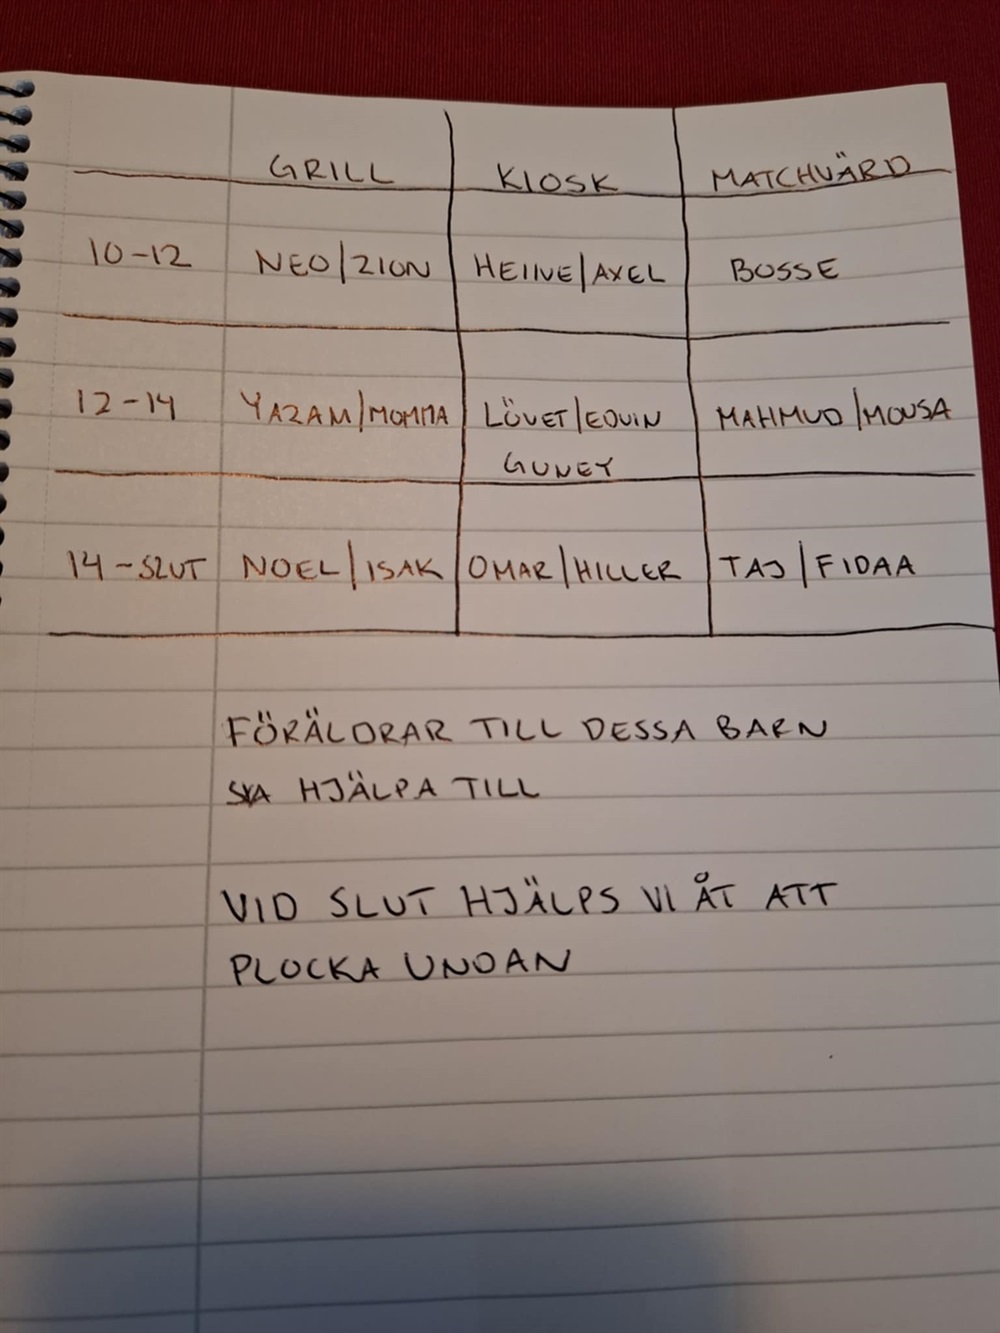 GRILL KIOSK MATCHVÄRD
10-12 NEO/ZION HEINE/AXEL BOSSE
12-14 YAZAM/MOMMA LÖVET/EDVIN MAHMUD/MOUSA
GUNEY
14-SLUT NOEL/ISAK OMAR/HILLER TAJ/FIDAA
FÖRÄLDRAR TILL DESSA BARN
SKA HJÄLPA TILL
VID SLUT HJÄLPS VI ÅT ATT
PLOCKA UNDAN